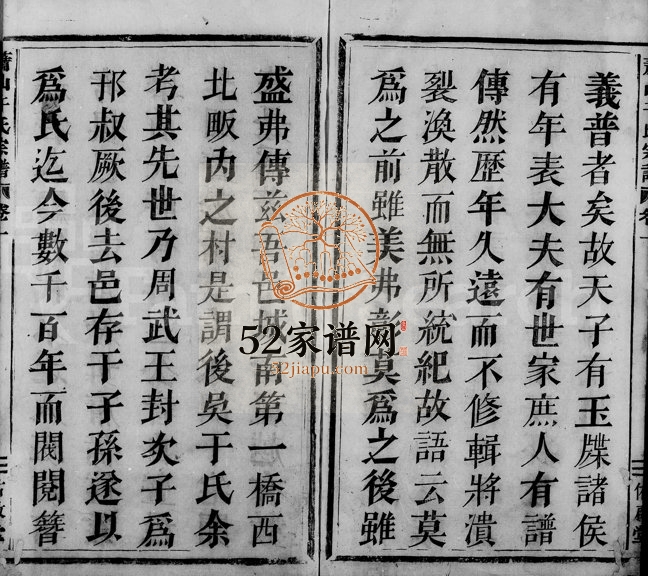 義普者矣故天子有玉牒諸侯
有年表大夫有世家庶人有譜
傳然歷年久遠而不修輯將潰
裂渙散而無所統紀故語云莫
為之前雖美弗彰莫為之後雖
盛弗傳兹吾邑城南第一橋西
北畈內之村是謂後吳于氏余
考其先世乃周武王封次子為
邘叔厥後去邑存于子孫遂以
為氏迄今數千百年而閥閱簪
52家谱网
52jiapu.com